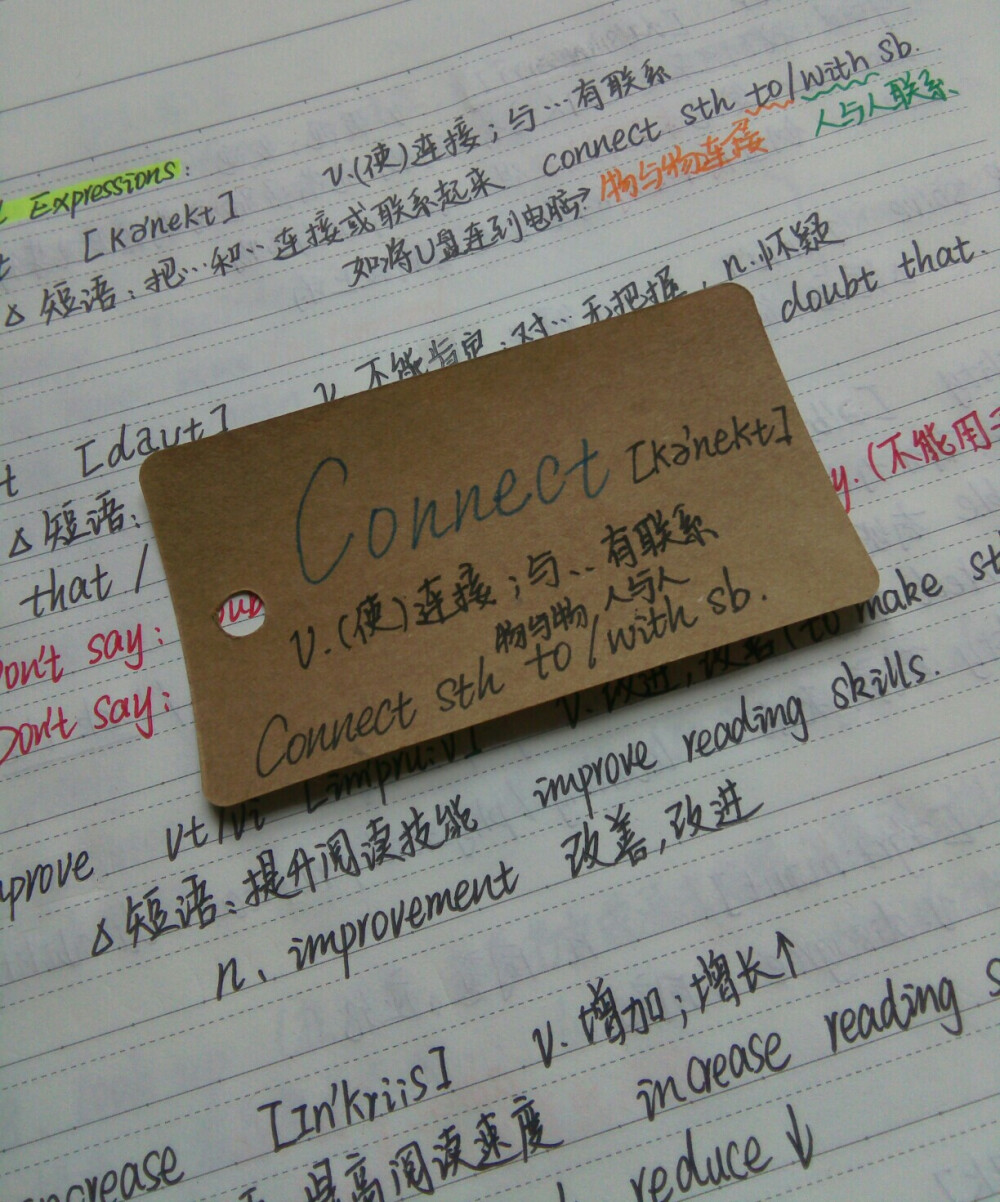 Expressions:
[kə'nekt] v.(使)连接;与…有联系
△ 短语:把…和…连接或联系起来 connect sth to/with sb.
如将U盘连到电脑? 物与物连接 人与人联系
[daut] v. 不能肯定;对…无把握, n.怀疑
△ 短语: doubt that.
that /
y.(不能用
Don't say:
Don't say:
Connect [kə'nekt]
v.(使)连接;与…有联系
物与物 人与人
Connect sth to/with sb.
vt/vi [impru:v] v.改进,改善(to make
△ 短语:提升阅读技能 improve reading skills.
n. improvement 改善,改进
[In'kri:s] v.增加;增长↑
提高阅读速度 increase reading
reduce ↓